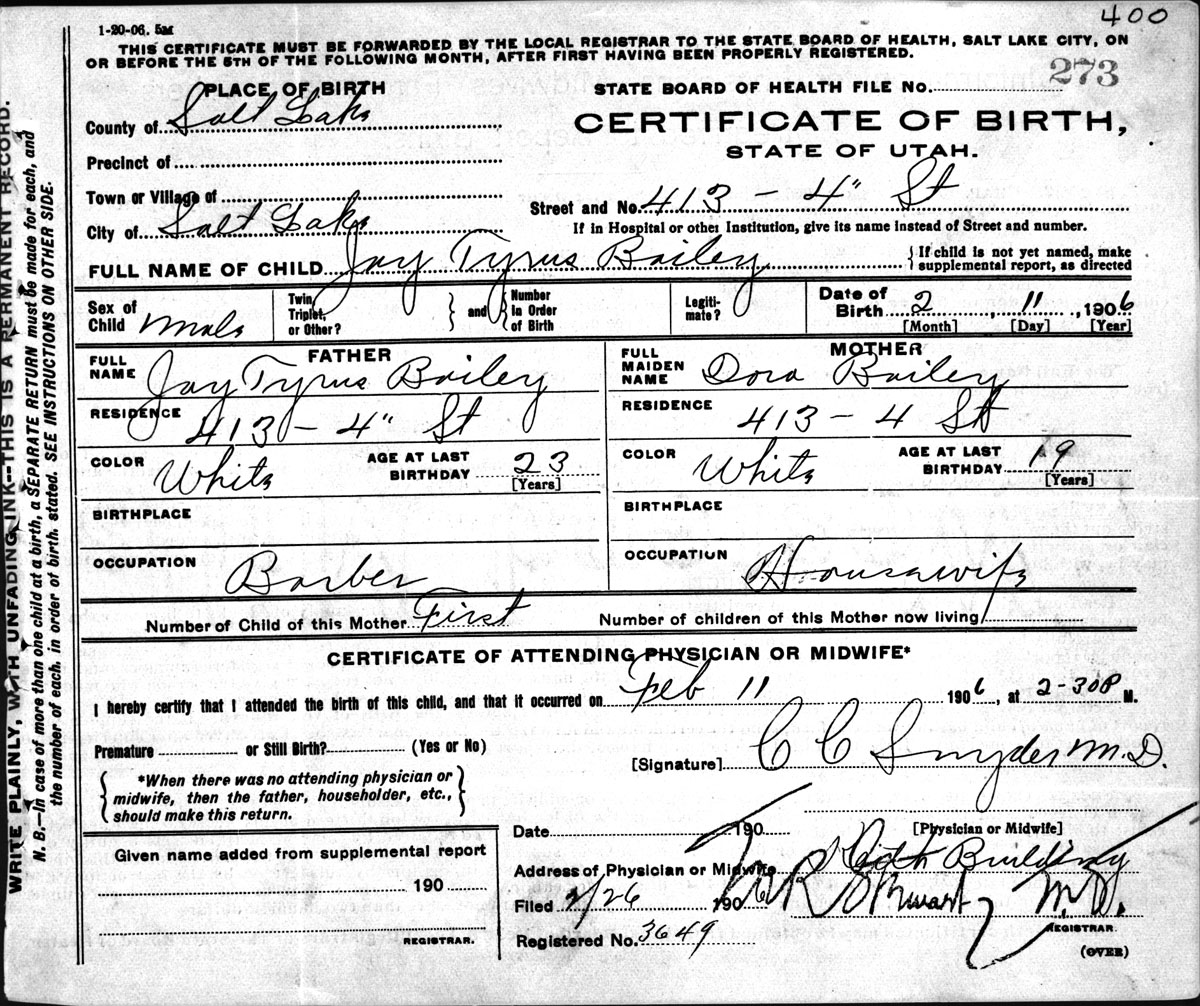 400
1-20-06. 5M
THIS CERTIFICATE MUST BE FORWARDED BY THE LOCAL REGISTRAR TO THE STATE BOARD OF HEALTH, SALT LAKE CITY, ON
OR BEFORE THE 5TH OF THE FOLLOWING MONTH, AFTER FIRST HAVING BEEN PROPERLY REGISTERED.
WRITE PLAINLY, WITH UNFADING INK—THIS IS A PERMANENT RECORD.
N. B.—In case of more than one child at a birth, a SEPARATE RETURN must be made for each, and
the number of each, in order of birth, stated. SEE INSTRUCTIONS ON OTHER SIDE.
PLACE OF BIRTH
County of Salt Lake
Precinct of
Town or Village of
City of Salt Lake
STATE BOARD OF HEALTH FILE No. 273
CERTIFICATE OF BIRTH,
STATE OF UTAH.
Street and No. 413 - 4" St
If in Hospital or other Institution, give its name instead of Street and number.
FULL NAME OF CHILD Jay Tyrus Bailey { If child is not yet named, make
supplemental report, as directed
Sex of
Child Male
Twin,
Triplet,
or Other? } and { Number
in Order
of Birth
Legiti-
mate?
Date of
Birth 2, 11, 1906
[Month] [Day] [Year]
FATHER
FULL
NAME Jay Tyrus Bailey
RESIDENCE 413 - 4" St
COLOR White AGE AT LAST
BIRTHDAY 23
[Years]
BIRTHPLACE
OCCUPATION Barber
MOTHER
FULL
MAIDEN
NAME Dora Bailey
RESIDENCE 413 - 4 St
COLOR White AGE AT LAST
BIRTHDAY 19
[Years]
BIRTHPLACE
OCCUPATION Housewife
Number of Child of this Mother First Number of children of this Mother now living
CERTIFICATE OF ATTENDING PHYSICIAN OR MIDWIFE*
I hereby certify that I attended the birth of this child, and that it occurred on Feb 11 1906, at 2-30P M.
Premature or Still Birth? (Yes or No)
[Signature] C C Snyder M.D.
{ *When there was no attending physician or
midwife, then the father, householder, etc.,
should make this return. }
[Physician or Midwife]
Date 190
Address of Physician or Midwife Keith Building
Filed 2/26 1906 M.D.
REGISTRAR.
Registered No. 3649
(OVER)
Given name added from supplemental report
190
REGISTRAR.